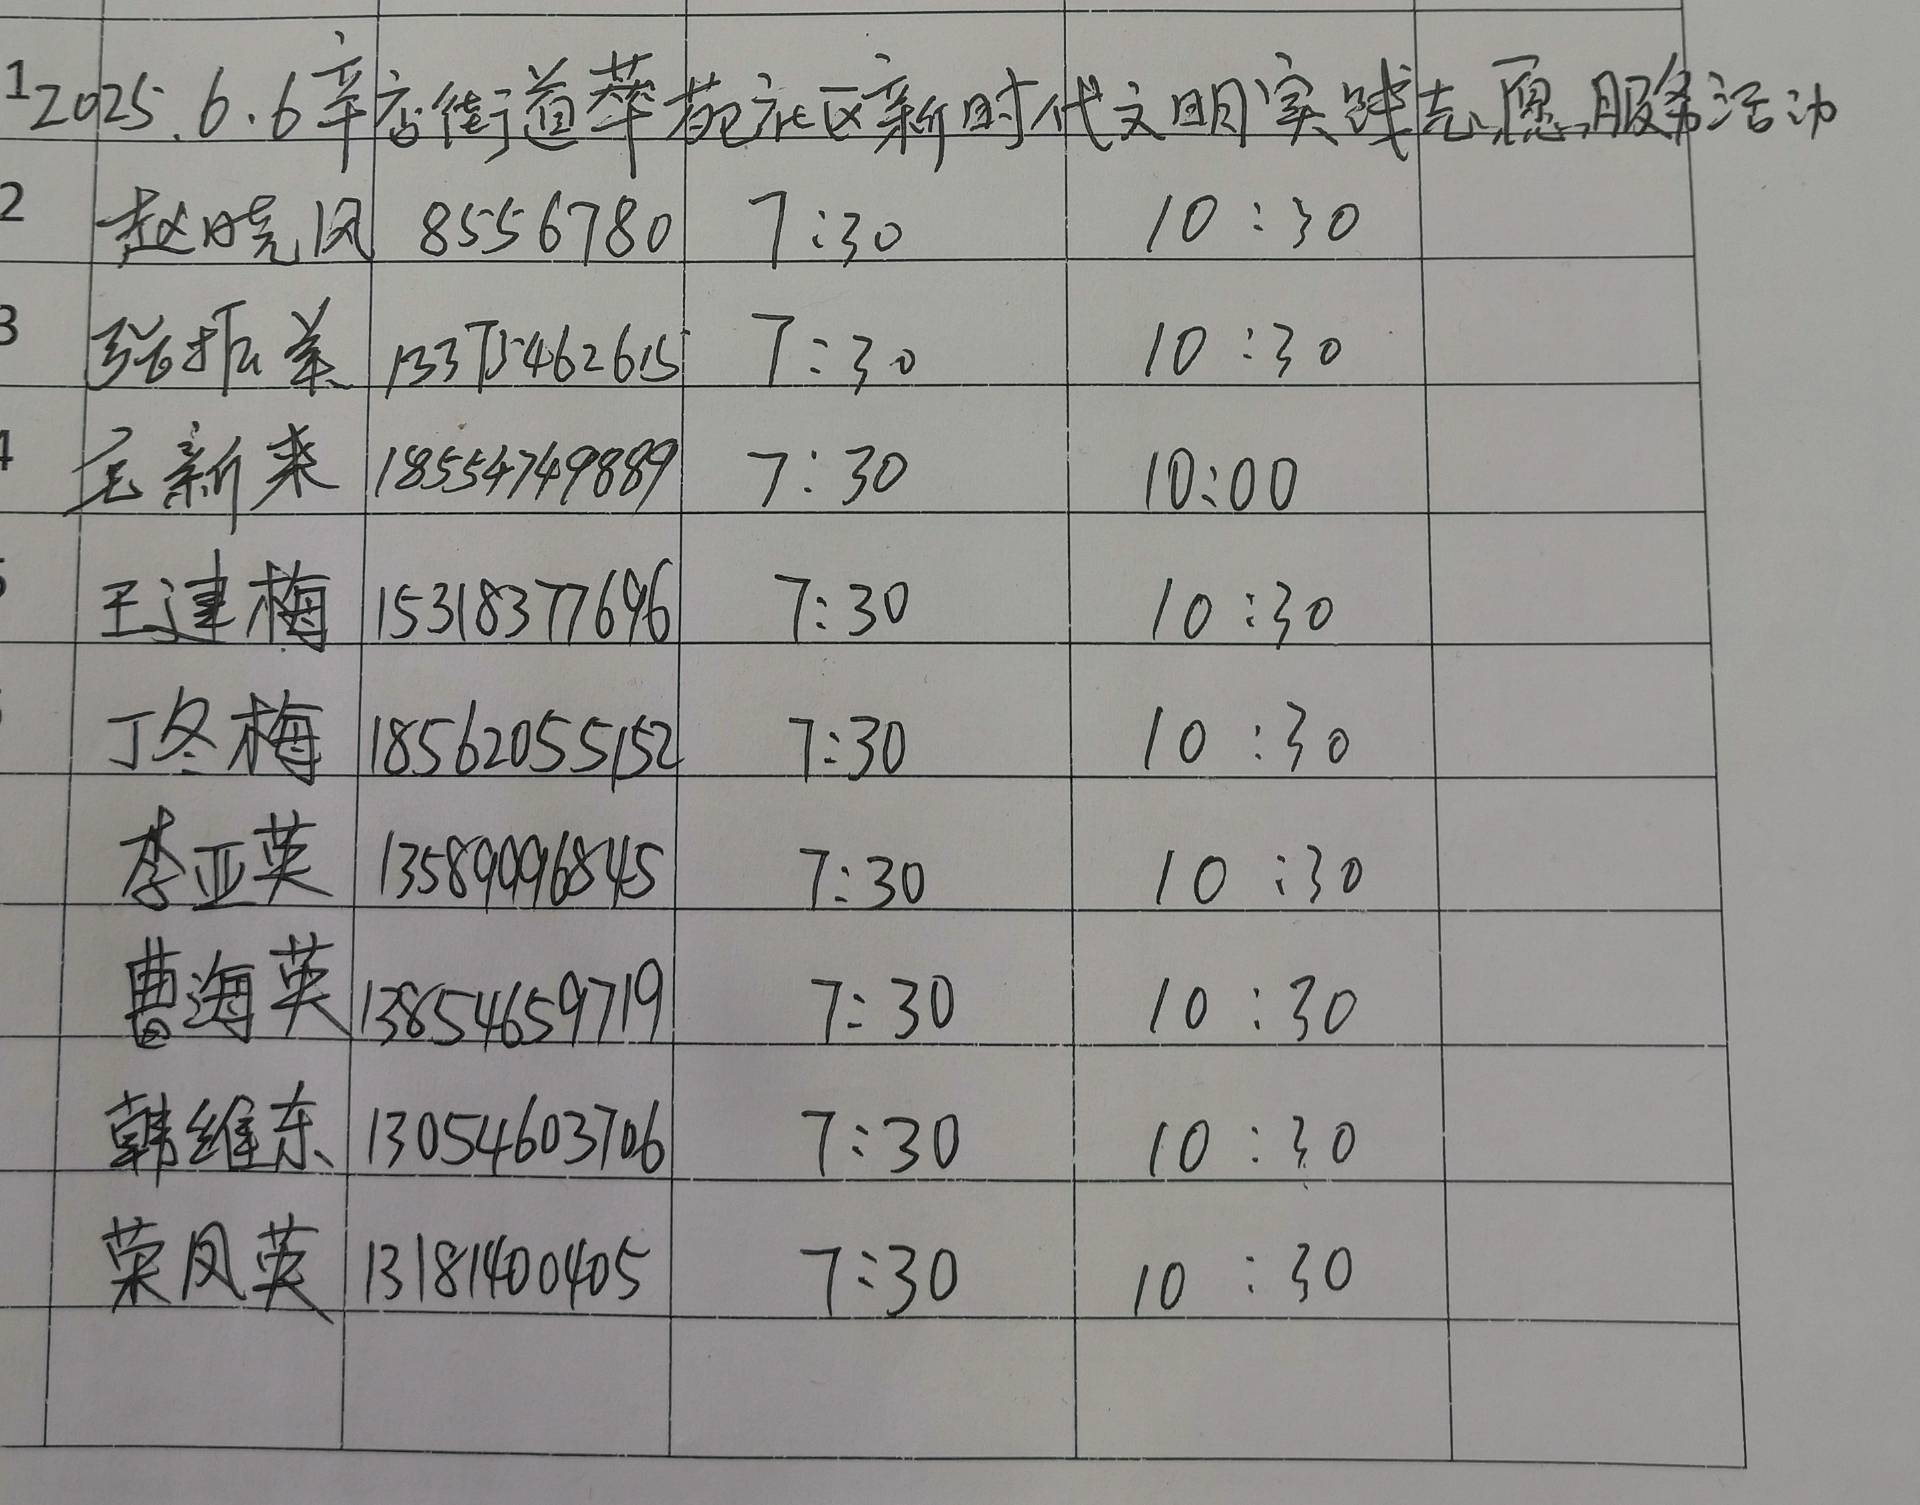 1 2025.6.6辛店街道萃苑社区新时代文明实践志愿服务活动
2 赵晓风 8556780 7:30 10:30
3 张振美 13375462615 7:30 10:30
4 王新来 18554749889 7:30 10:00
王建梅 15318377696 7:30 10:30
丁冬梅 18562055152 7:30 10:30
李亚英 13589996845 7:30 10:30
曹海英 13854659719 7:30 10:30
韩维东 13054603706 7:30 10:30
荣风英 13181400405 7:30 10:30